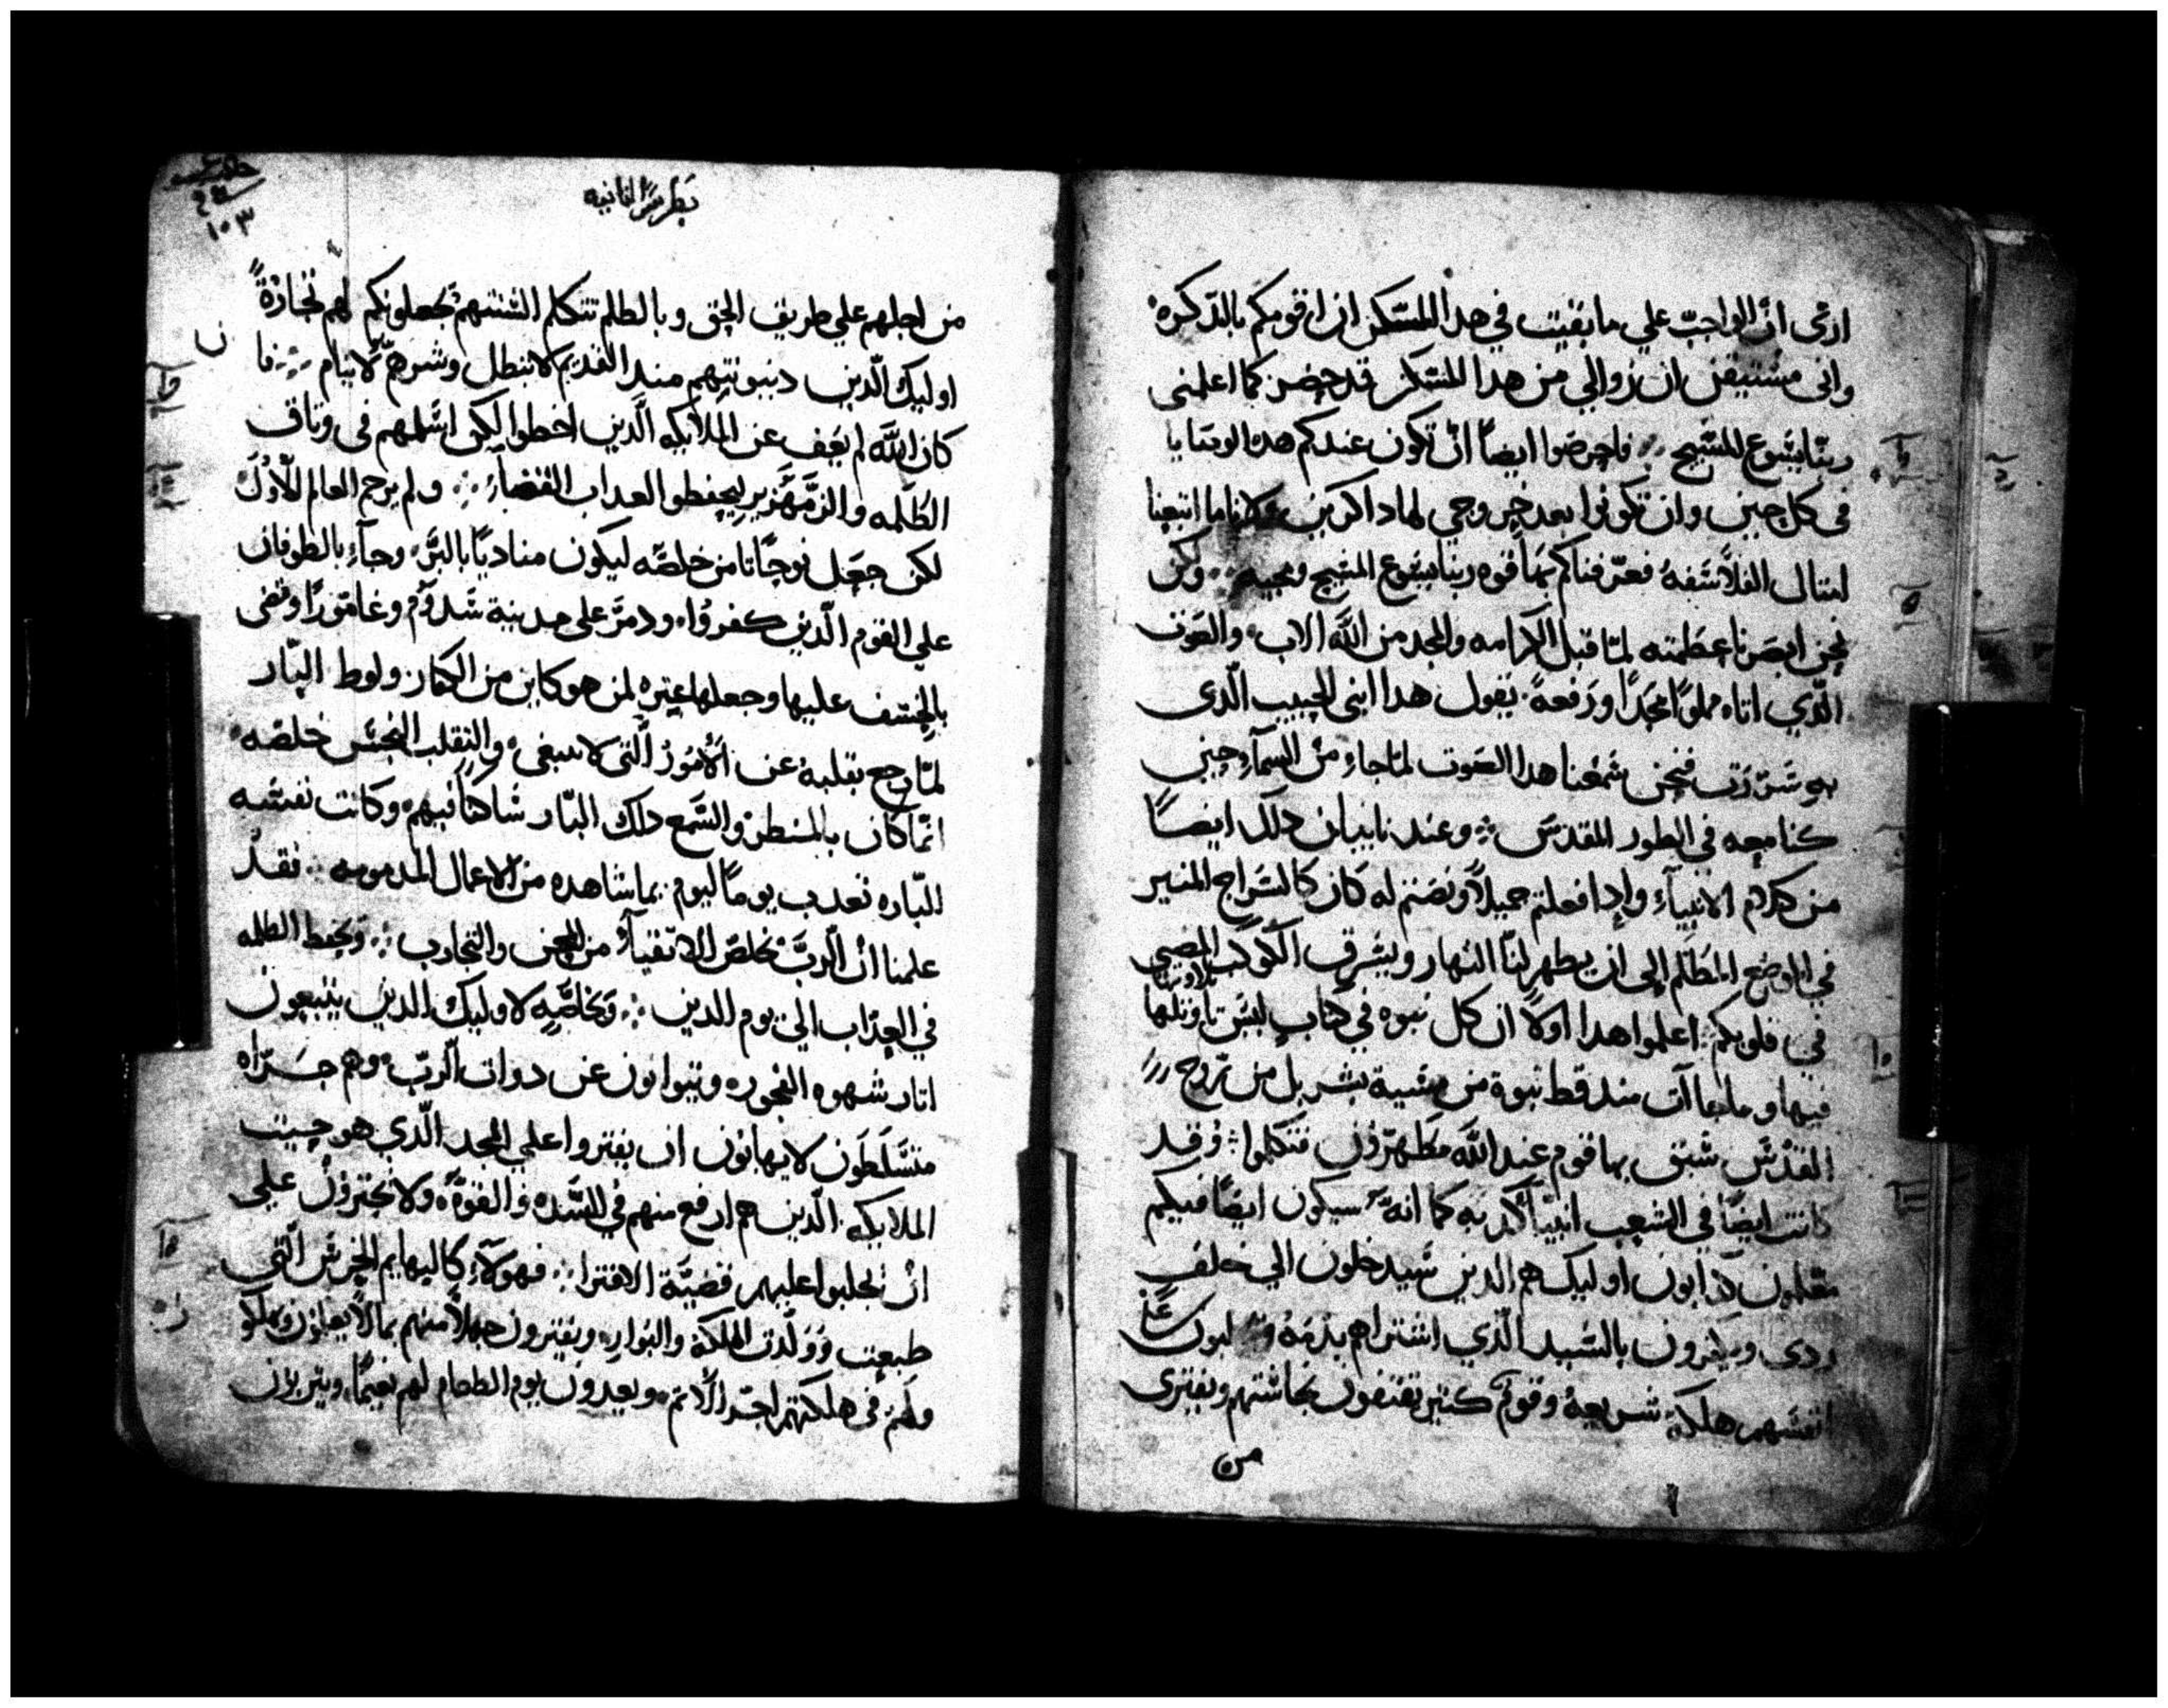 ارى ان الواجب علي ما بقيت في هدا المسكن ان اقومكم بالتدكره
وانى مستيقن ان زوالي من هدا المسكن قد حضر كما اعلمنى
ربنا يسوع المسيح فاحرصوا ايضًا ان تكون عندكم هده الوصايا
فى كل حين وان تكونوا بعد خروجي لها داكرين ولانا ما اتبعنا
امتال الفلاسفه فعرفناكم بها قوه ربنا يسوع المسيح ومجيه ولكن
نحن ابصرنا عظمته لما قبل الكرامه والمجد من الله الاب والصوت
الّدي اتاه مملوًا مجدًا ورفعةً يقول هدا ابنى الحبيب الّدى
به سررت فنحن سمعنا هدا الصوت لما جاء من السمآء وحين
كنا معه في الطور المقدس وعندنا بيان دلك ايضًا
من كلام الانبيآء وادا فعلتم جميلًا ونصتم له كان كالسراج المنير
في الموضع المظلم الى ان يظهر لنا النهار ويشرق الكوكب المضى
في قلوبكم اعلموا هدا اولًا ان كل نبوه في كتاب ليس تاويلها
فيها وما جاآت مند قط نبوة من مشية بشر بل من روح
القدس سبق بها قوم عند الله مطهرون فتكلموا وقد
كانت ايضًا في الشعب انبيآ كدبه كما انه سيكون ايضًا فيكم
معلمون كدابون اوليك هم الدين سيدخلون الي خلف
ردى ويكفرون بالسيد الّدي اشتراهم بدمه و لبون عَلَى
انفسهم هلكه سريعه وقوم كتير يقتفون نجاستهم ويفترى
من
بطرس الثانيه
١٠٣
من اجلهم علي طريق الحق وبالظلم تتكلم السنتهم يجعلونكم لهم تجارةً
اوليك الّدين دينونتهم مند القديم لا تبطل وشرهم لا ينام فا
كان الله لم يعف عن الملايكه الّدين اخطوا لكن اسلمهم فى وتاق
الظلمه والزمهرير ليحفظوا لعداب القضآء ولم يرحم العالم الاول
لكن جعل نوحًا تامن خلصه ليكون مناديًا بالبر وجآء بالطوفان
علي القوم الّدين كفروا ودمر على مدينة سدوم وغامورا وقضى
بالخسف عليها وجعلها عبره لمن هو كاين من الكفار ولوط البار
لما رجع بقلبه عن الامور الّتى لا تنبغى والتقلب النجس خلصه
انما كان بالمنظر والسمع دلك البار ساكنا فيهم وكانت نفسه
الباره تعدب يومًا ليوم بما شاهده من الاعمال المدمومه فقد
علمنا ان الرب يخلص الاتقيآء من المحن والتجارب ويحفظ الظلمه
في العداب الي يوم الدين وبخاصّه لاوليك الدين يتبعون
اتار شهوه الفجوره ويتوانون عن دوات الرب وهم جراه
متسلطون لا يهابون ان يفتروا على المجد الّدي هو حيت
الملايكه الّدين هم ارفع منهم في الشده والقوّه ولا يجترون على
ان يجلبوا عليهم قضيّة الافترا فهولآء كالبهايم الخرس الّتى
طبعت وولدت للهلكه والبوار ويفترون جهلًا منهم بما لا يعلمون ويهلكو
ولهم فى هلكتهم اجر الاتم ويعدون يوم الطعام لهم نعيمًا ويتربون